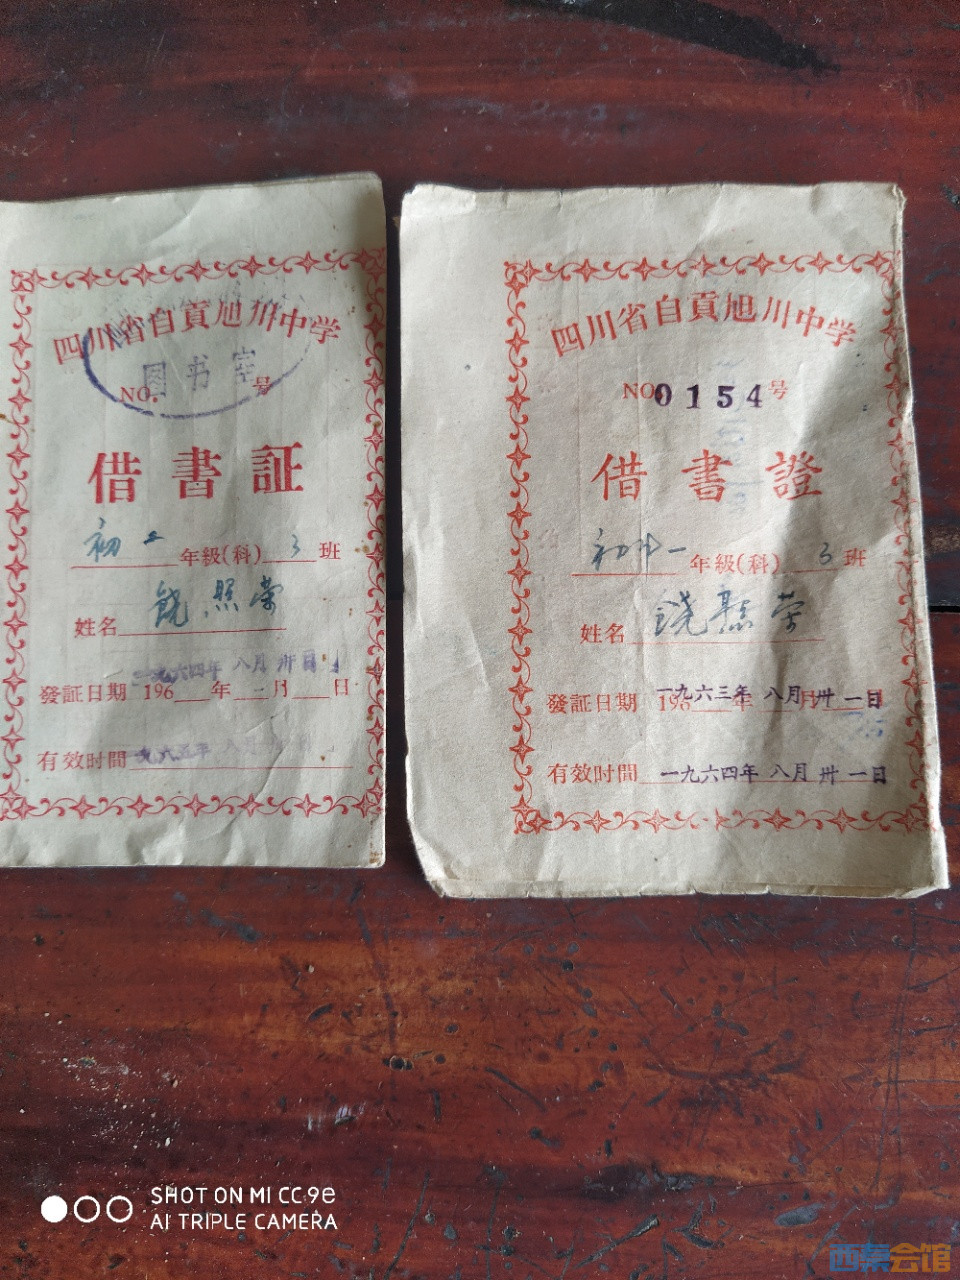 四川省自貢旭川中学
图书室
NO. 号
借書証
初二年級(科)3班
姓名 饶照荣
一九六四年八月卅日
發証日期 196 年 月 日
有效时間 一九六五年八月
四川省自貢旭川中学
NO 0154 号
借書證
初中一年級(科)3班
姓名 饶照荣
發証日期 196 年 月 日
一九六三年八月卅一日
有效时間 一九六四年八月卅一日
SHOT ON MI CC 9e
AI TRIPLE CAMERA
西秦会馆